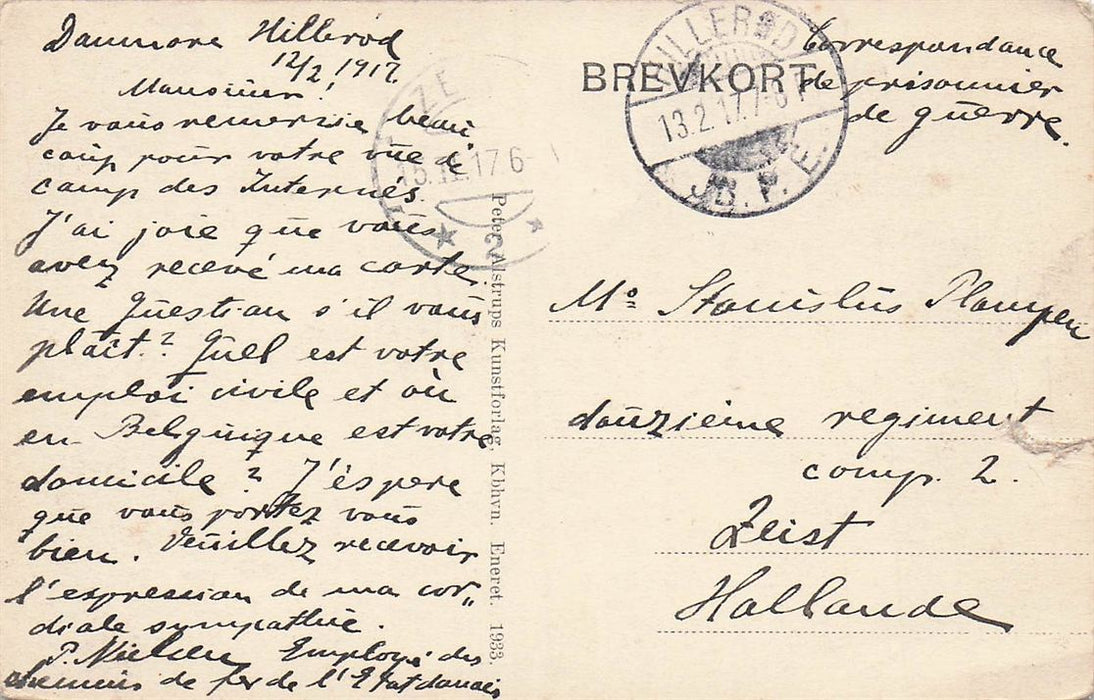 Danmore Hillerod
12/2 1917.
Monsieur!
Je vous remercie beau
coup pour votre vue de
camp des Internés.
J'ai joie que vous
avez recevé ma carte.
Une Question s'il vous
plâit? Quel est votre
emploi civile et où
en Belguique est votre
domicile? J'éspere
que vous portez vous
bien. Veuillez recevoir
l'expression de ma cor„
diale sympathie.
P. Nielsen Employé des
chemins de fer de l'Etat danois
Peter Alstrups Kunstforlag, Kbhvn. Eneret. 1933.
BREVKORT
Correspondance
de prisonnier
de guerre.
HILLERØD
13.2.17.7-8 F
JB.P.E.
ZE
16.II.17 6-
2
Mo Stanislus Plampen
douzième regiment
comp. 2.
Zeist
Hollande